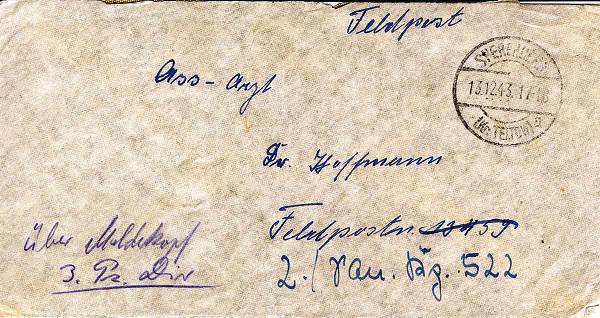 Feldpost
SPERENBERG
13.12.43.17-18
(Kr. TELTOW) a
Ass-Arzt
Dr. Hoffmann
Feldpostn. 13459
2./San. Kp. 522
über Meldekopf
3. Pz. Div